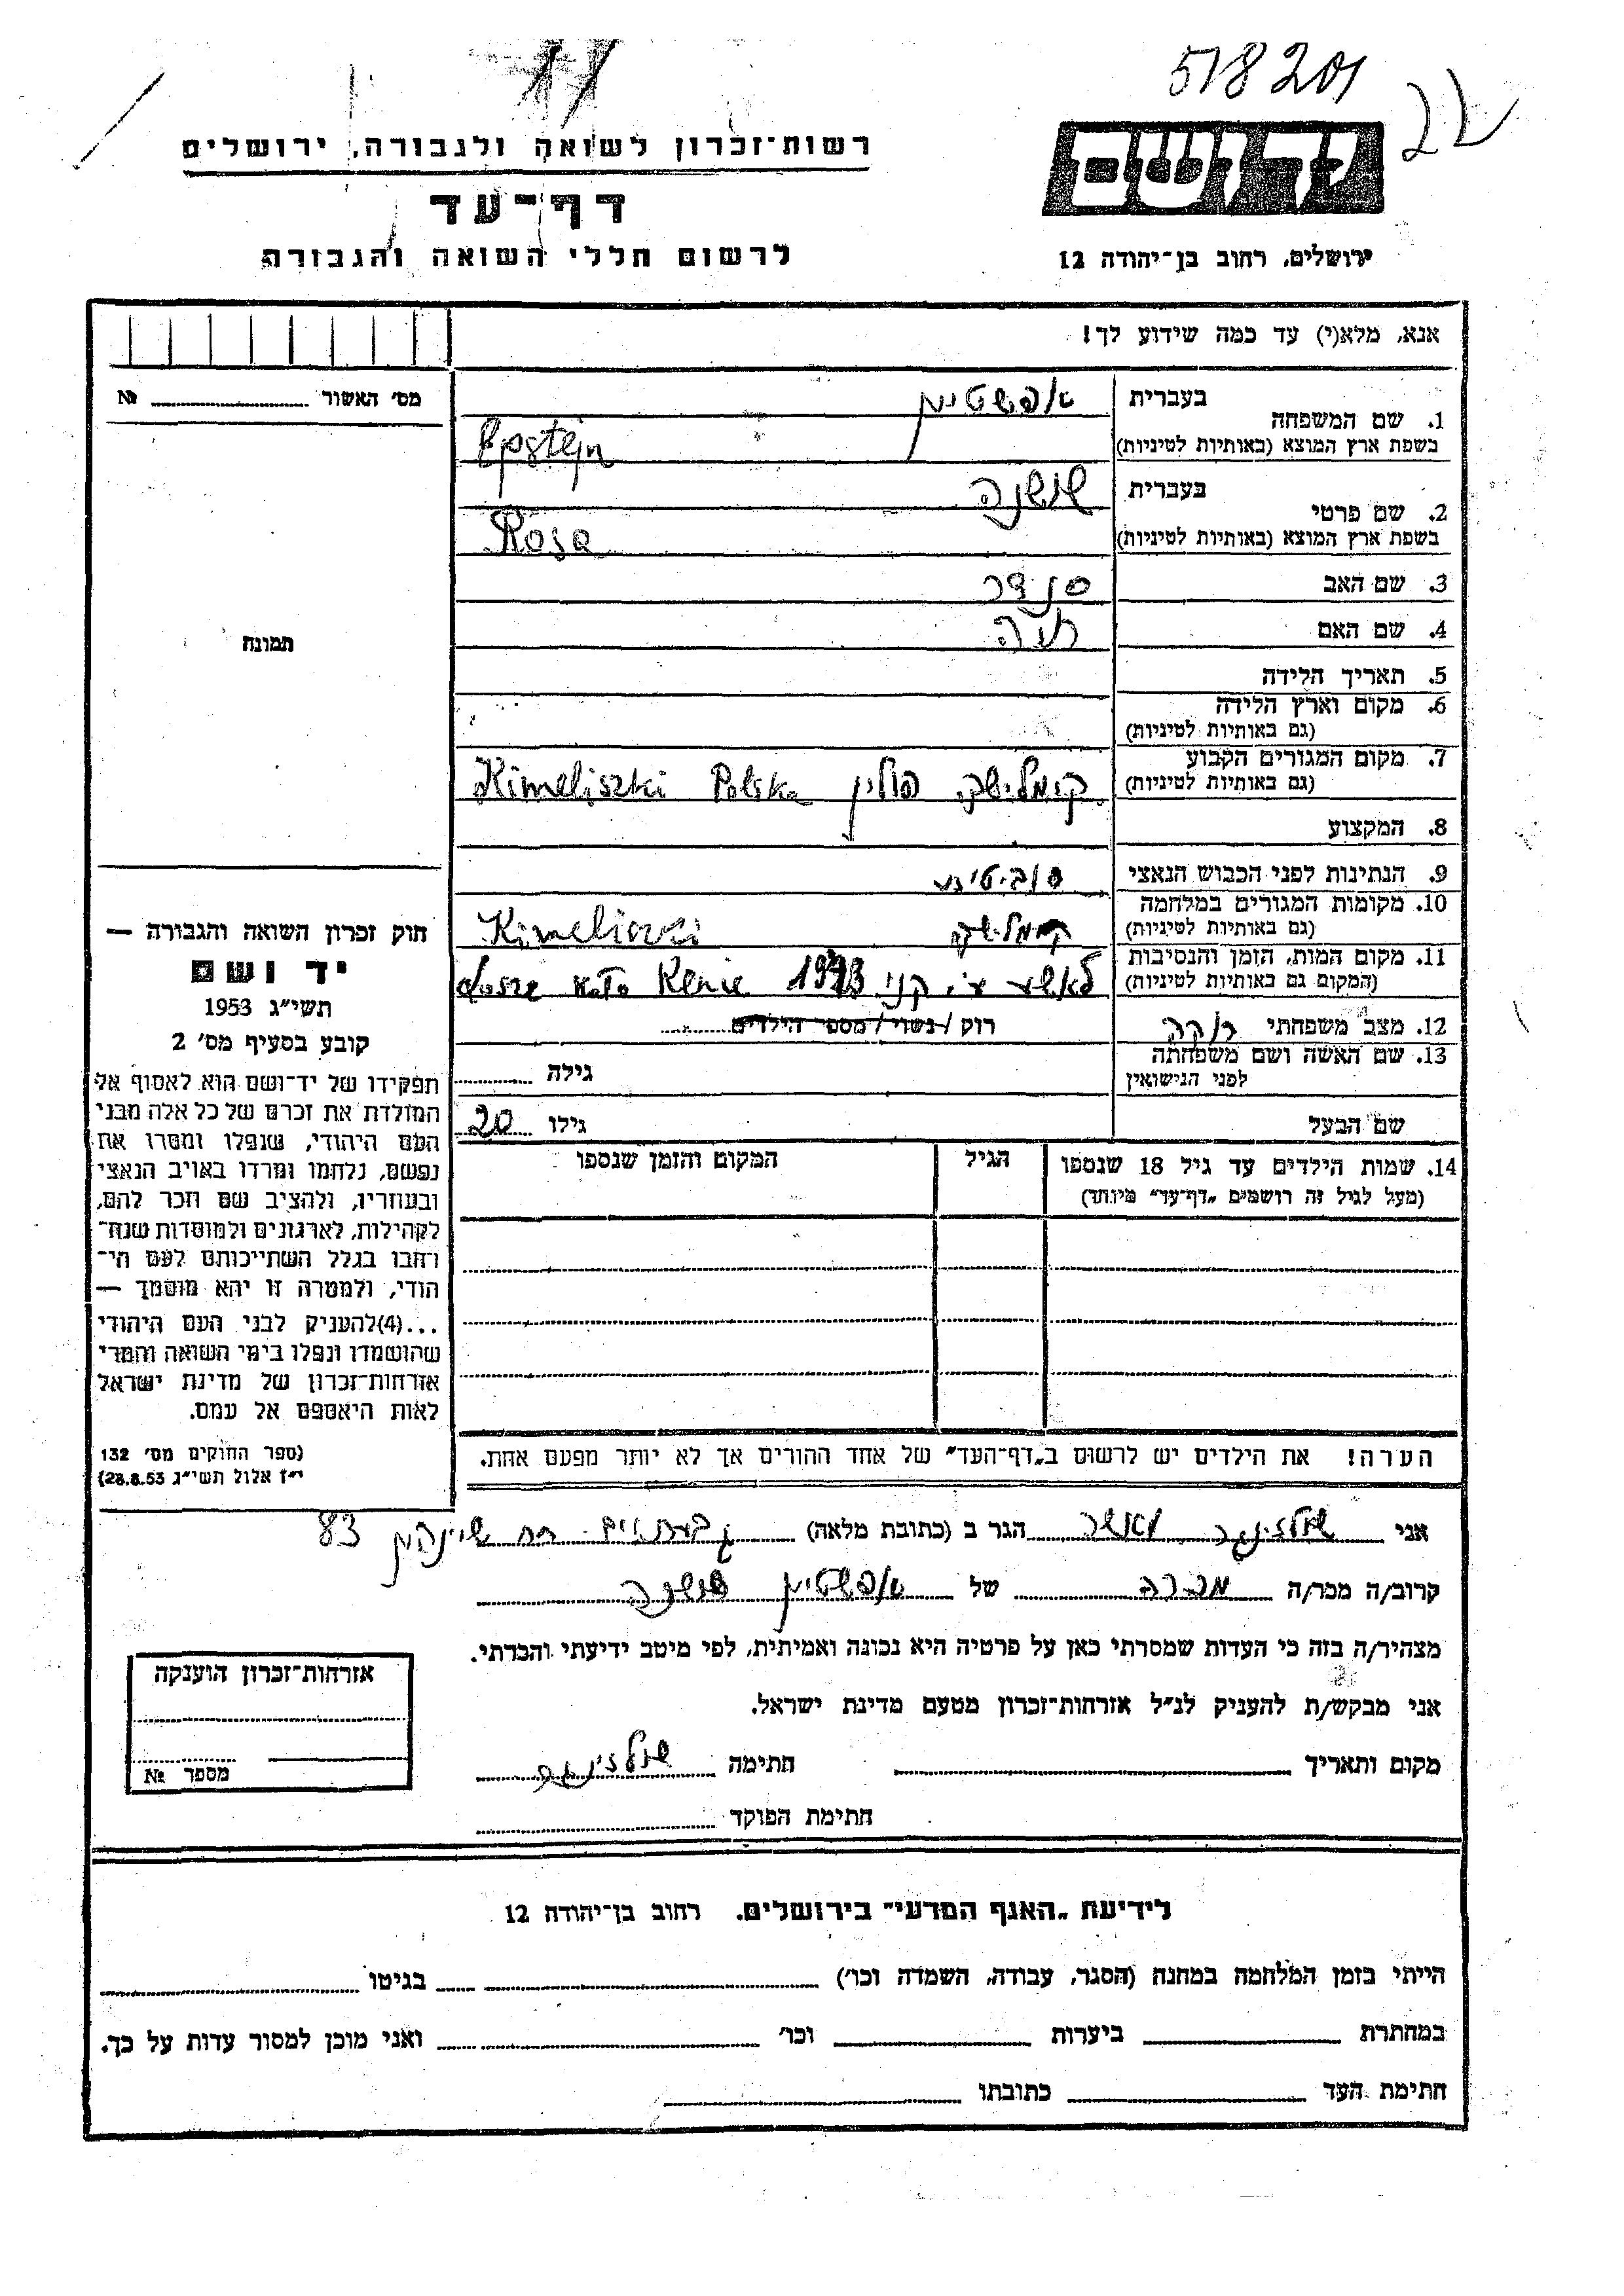 518201
22
ידושם
רשות־זכרון לשואה ולגבורה, ירושלים
דף־עד
לרשום חללי השואה והגבורה
ירושלים, רחוב בן־יהודה 12
אנא, מלא(י) עד כמה שידוע לך!
מס' האשור № 
תמונה
1. שם המשפחה
בעברית אפשטיין
בשפת ארץ המוצא (באותיות לטיניות) Epstejn
2. שם פרטי
בעברית שושנה
בשפת ארץ המוצא (באותיות לטיניות) Rosa
3. שם האב סנדר
4. שם האם חיה
5. תאריך הלידה
6. מקום וארץ הלידה
(גם באותיות לטיניות)
7. מקום המגורים הקבוע
(גם באותיות לטיניות) קימלישקה פולין Kimeliszki Polska
8. המקצוע
9. הנתינות לפני הכבוש הנאצי
10. מקומות המגורים במלחמה
(גם באותיות לטיניות) קימלישקה
11. מקום המות, הזמן והנסיבות
(המקום גם באותיות לטיניות) 1943
12. מצב משפחתי רוקה רוק/נשוי/מספר הילדים
13. שם האשה ושם משפחתה
לפני הנישואין גילה
שם הבעל גילו 20
14. שמות הילדים עד גיל 18 שנספו הגיל המקום והזמן שנספו
(מעל לגיל זה רושמים „דף־עד" מיוחד)
הערה! את הילדים יש לרשום ב„דף־העד" של אחד ההורים אך לא יותר מפעם אחת.
חוק זכרון השואה והגבורה —
יד ושם
תשי"ג 1953
קובע בסעיף מס' 2
תפקידו של יד־ושם הוא לאסוף אל
המולדת את זכרם של כל אלה מבני
העם היהודי, שנפלו ומסרו את
נפשם, נלחמו ומרדו באויב הנאצי
ובעוזריו, ולהציב שם וזכר להם,
לקהילות, לארגונים ולמוסדות שנח־
רחבו בגלל השתייכותם לעם הי־
הודי, ולמטרה זו יהא מוסמך —
...(4)להעניק לבני העם היהודי
שהושמדו ונפלו בימי השואה והמרי
אזרחות־זכרון של מדינת ישראל
לאות היאספם אל עמם.
(ספר החוקים מס' 132
י"ז אלול תשי"ג 28.8.53)
אני שולזינגר הגר ב (כתובת מלאה) גבעתיים רח שיינקין 83
קרוב/ה מכר/ה מכרה של אפשטיין שושנה
מצהיר/ה בזה כי העדות שמסרתי כאן על פרטיה היא נכונה ואמיתית, לפי מיטב ידיעתי והכרתי.
אני מבקש/ת להעניק לנ"ל אזרחות־זכרון מטעם מדינת ישראל.
מקום ותאריך חתימה שולזינגר
חתימת הפוקד
אזרחות־זכרון הוענקה
מספר №
לידיעת „האגף המדעי" בירושלים. רחוב בן־יהודה 12
הייתי בזמן המלחמה במחנה (הסגר, עבודה, השמדה וכו') בגיטו
במחתרת ביערות וכו' ואני מוכן למסור עדות על כך.
חתימת העד כתובתו